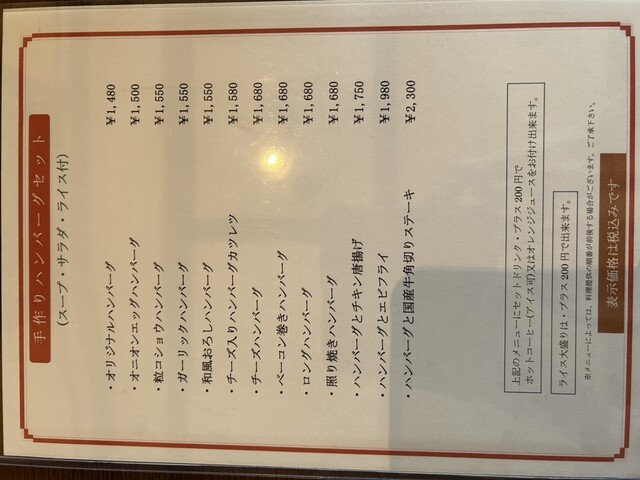 手作りハンバーグセット
(スープ・サラダ・ライス付)
・オリジナルハンバーグ ¥1,480
・オニオンエッグハンバーグ ¥1,500
・粒コショウハンバーグ ¥1,550
・ガーリックハンバーグ ¥1,550
・和風おろしハンバーグ ¥1,550
・チーズ入りハンバーグカツレツ ¥1,580
・チーズハンバーグ ¥1,680
・ベーコン巻きハンバーグ ¥1,680
・ロングハンバーグ ¥1,680
・照り焼きハンバーグ ¥1,680
・ハンバーグとチキン唐揚げ ¥1,750
・ハンバーグとエビフライ ¥1,980
・ハンバーグと国産牛角切りステーキ ¥2,300
上記のメニューにセットドリンク・プラス200円で
ホットコーヒー(アイス可)又はオレンジジュースをお付け出来ます。
ライス大盛りは・プラス200円で出来ます。
※メニューによっては、料理提供の順番が前後する場合がございます。ご了承下さい。
表示価格は税込みです